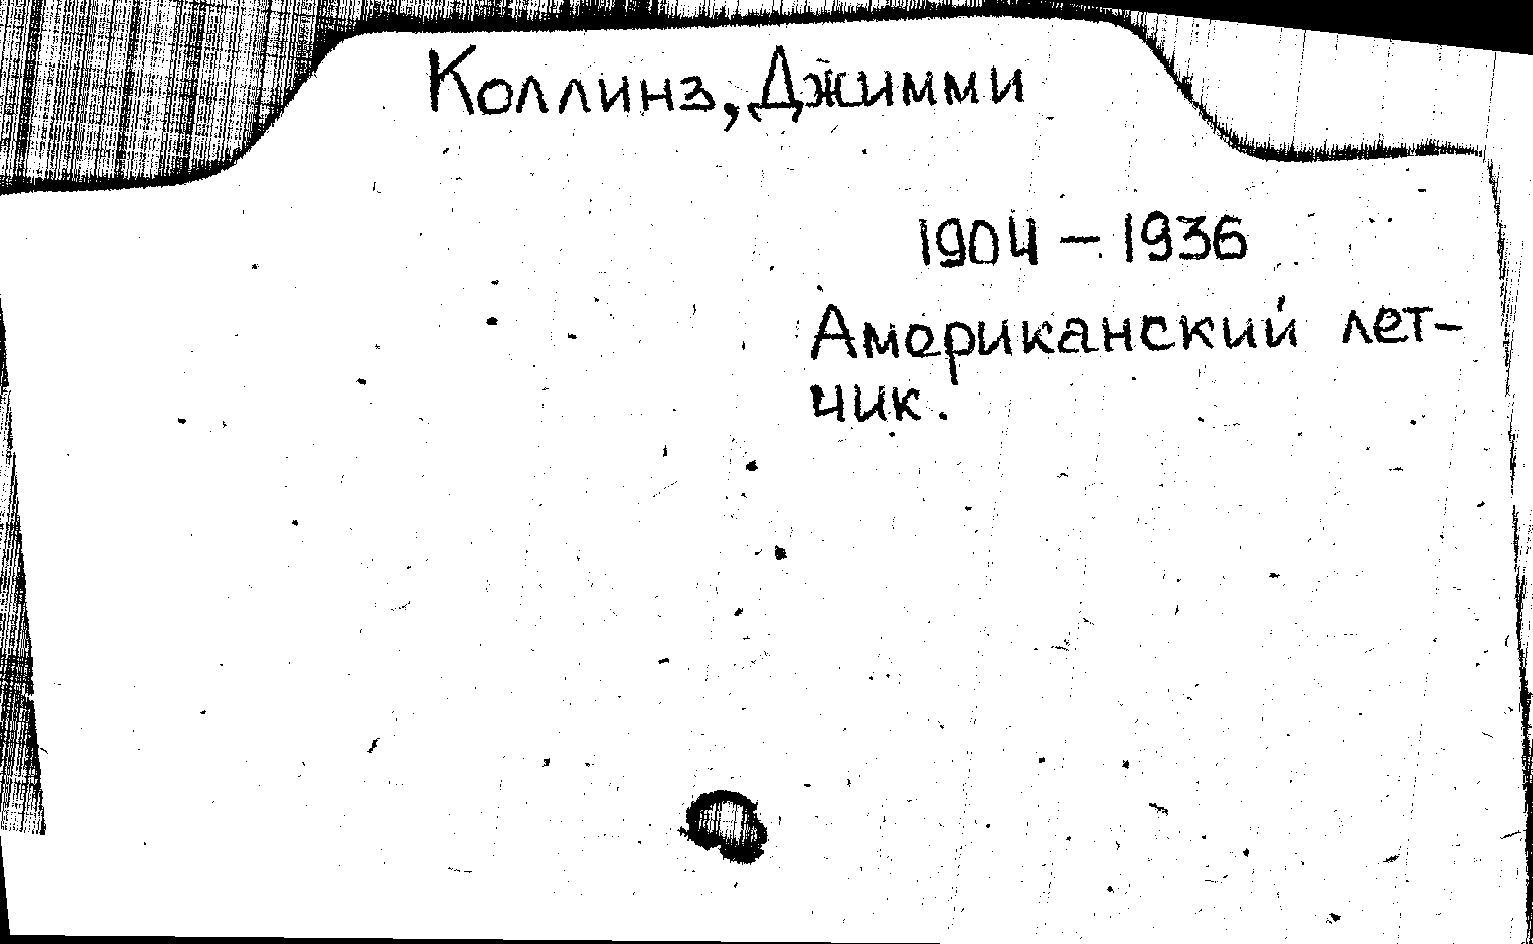 Коллинз, Джимми
1904 – 1936
Американский лет-
чик.